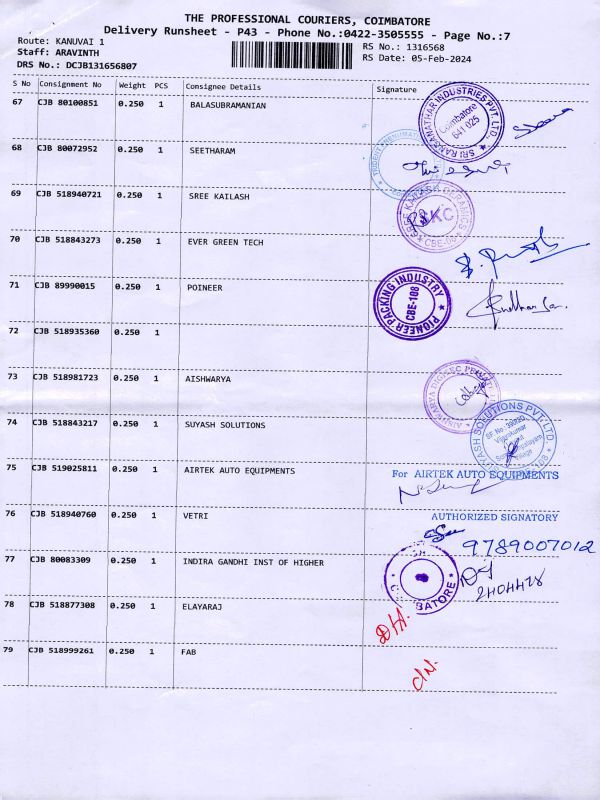 THE PROFESSIONAL COURIERS, COIMBATORE
Delivery Runsheet - P43 - Phone No.:0422-3505555 - Page No.:7
Route: KANUVAI 1
RS No.: 1316568
Staff: ARAVINTH
RS Date: 05-Feb-2024
DRS No.: DCJB131656807
S No Consignment No Weight PCS Consignee Details Signature
67 CJB 80100851 0.250 1 BALASUBRAMANIAN
SRI RANGANATHAR INDUSTRIES PVT. LTD.
Coimbatore
641 025
68 CJB 80072952 0.250 1 SEETHARAM
69 CJB 518940721 0.250 1 SREE KAILASH
SREE KAILASH CERAMICS
SKC
70 CJB 518843273 0.250 1 EVER GREEN TECH
71 CJB 89990015 0.250 1 POINEER
PIONEER PACKING INDUSTRY
CBE-108
72 CJB 518935360 0.250 1
73 CJB 518981723 0.250 1 AISHWARYA
74 CJB 518843217 0.250 1 SUYASH SOLUTIONS
SUYASH SOLUTIONS PVT. LTD.
75 CJB 519025811 0.250 1 AIRTEK AUTO EQUIPMENTS
For AIRTEK AUTO EQUIPMENTS
76 CJB 518940760 0.250 1 VETRI
AUTHORIZED SIGNATORY
9789007012
77 CJB 80083309 0.250 1 INDIRA GANDHI INST OF HIGHER
2404478
78 CJB 518877308 0.250 1 ELAYARAJ
79 CJB 518999261 0.250 1 FAB